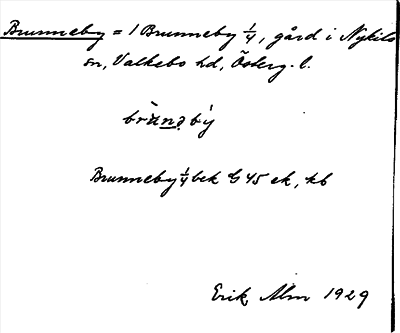 Brunneby = 1 Brunneby 1/4, gård i Nykils
sn, Valkebo hd, Österg. l.
Brunneby 1/4 bek G 45 ek, kb
Erik Alm 1929